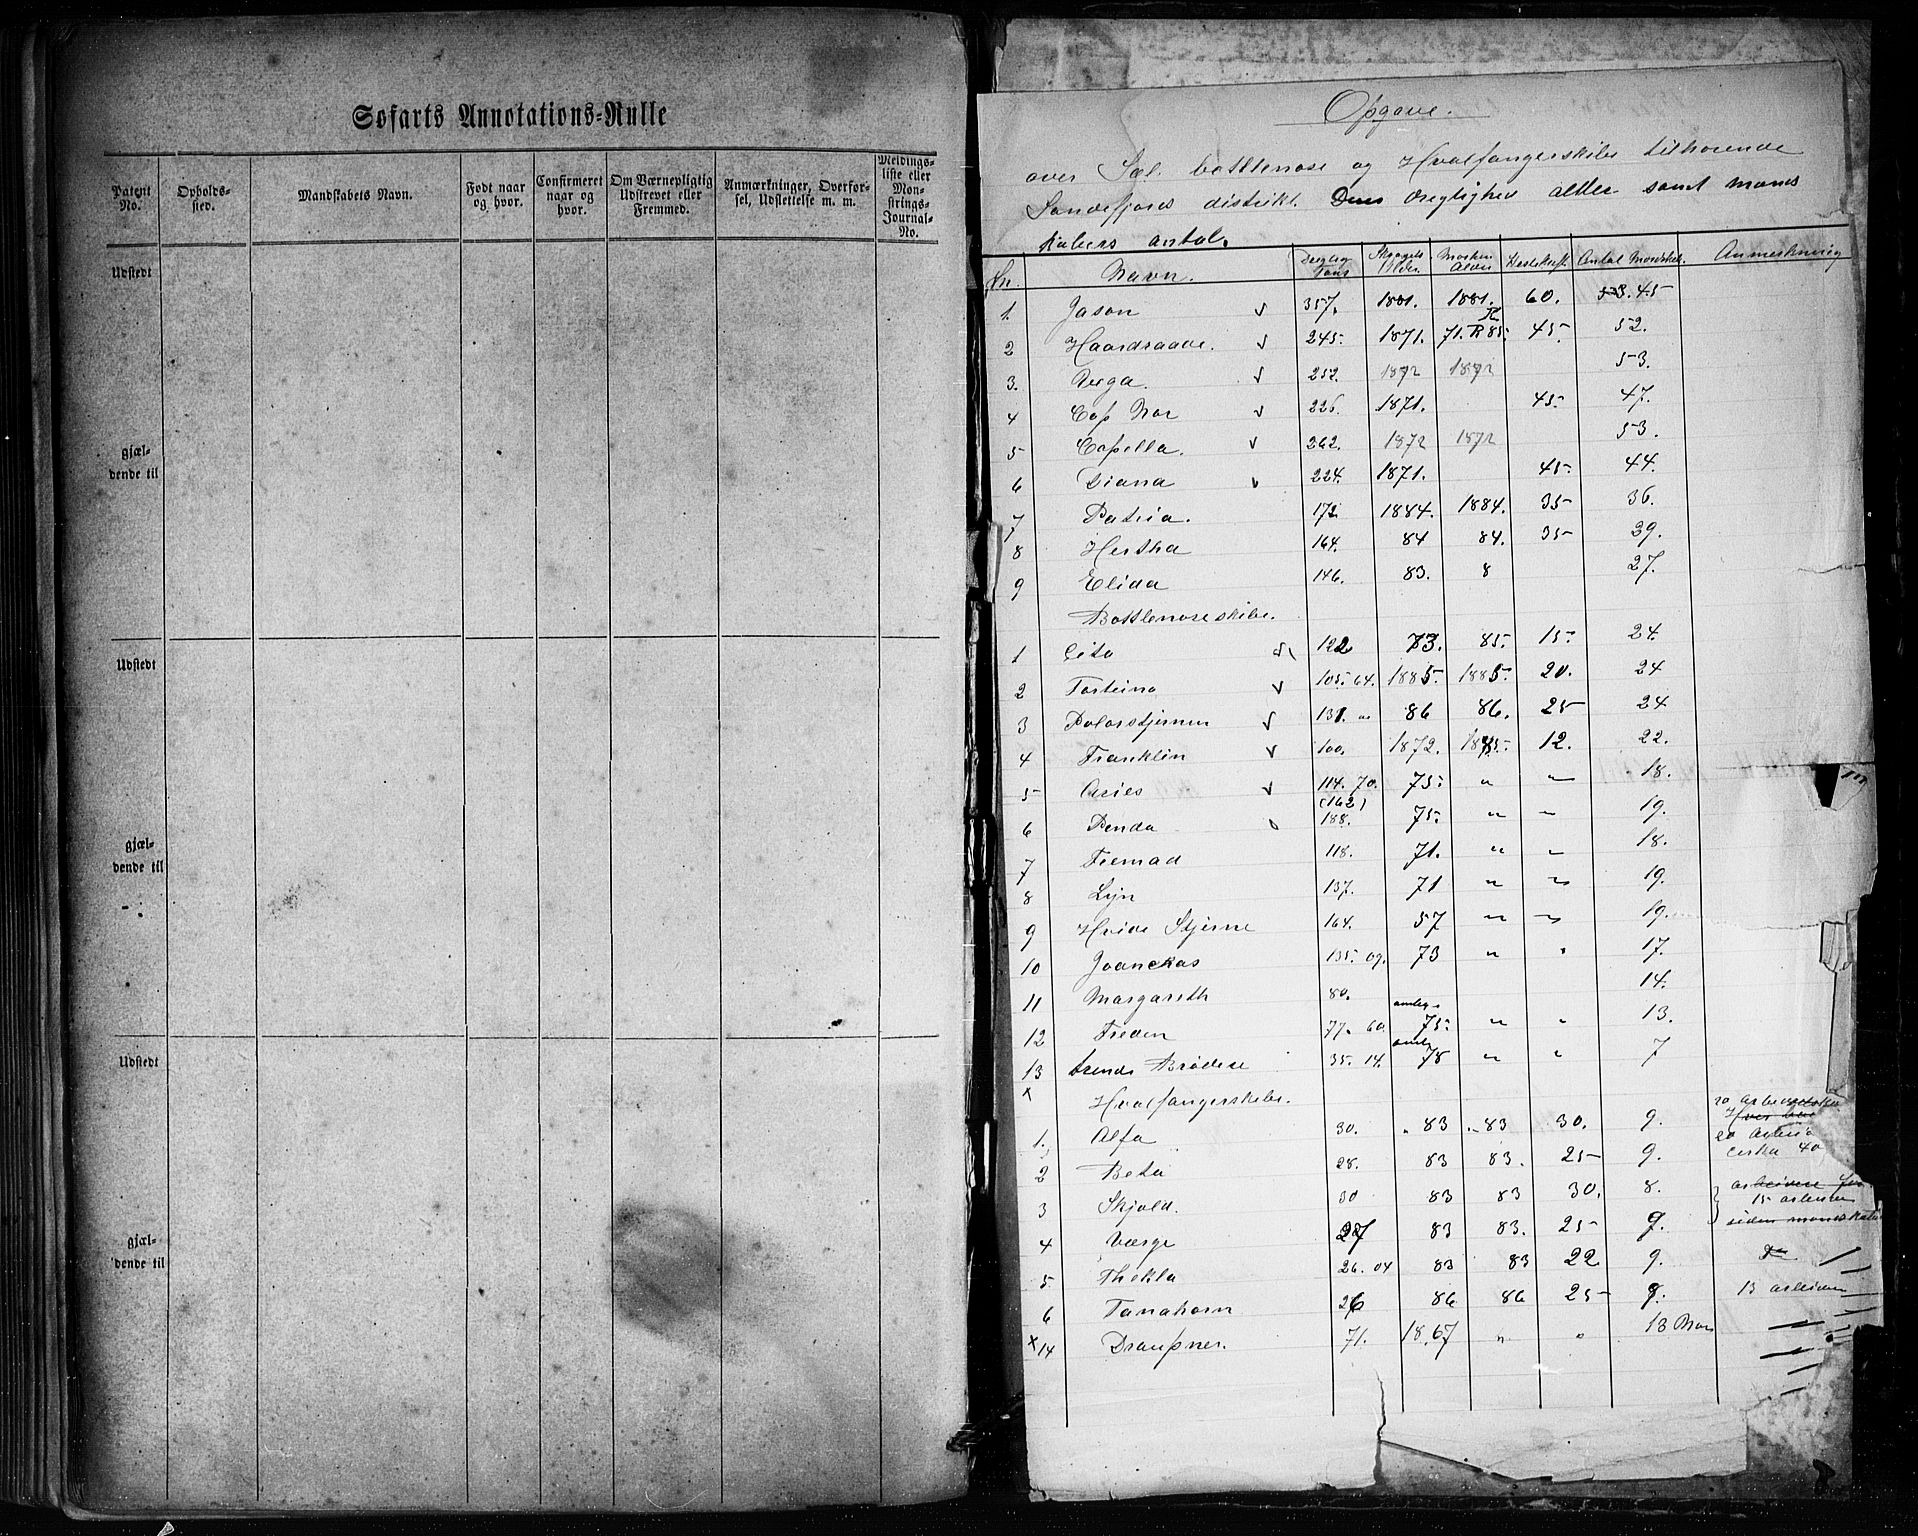 Søfarts Annotations-Rulle
Patent No. Opholds-sted. Mandskabets Navn. Født naar og hvor. Confirmeret naar og hvor. Om Værnepligtig Udskrevet eller Fremmed. Anmærkninger, Overfor-sel, Udslettelse m. m. Meldings-liste eller Mon-strings-Journal-No.
Udstedt
gjæl-
dende til
Udstedt
gjæl-
dende til
Udstedt
gjæl-
dende til
Opgave.
over Sæl. botttenose og Hvalfangerskibe tilhørende
Sandefjords distrikt. Dens dregtighed alder samt mand
skabers antal.
No. Navn. Dregtig Tons Skrogets Alder Maskin Alder Hestekraft Antal Mandskab. Anmerkning
1. Jason √ 357. 1881. 1881. 60. 53. 45
2 Haardraade. √ 245. 1871. 71. R 85. 45 52.
3. Vega. √ 252. 1872 1872 53.
4 Cap Nor √ 226. 1871. 45 47.
5 Capella. √ 262. 1872 1872 53.
6 Diana √ 224. 1871. 45. 44.
7 Patria. 172 1884. 1884. 35 36.
8 Hertha 164. 84 84. 35 39.
9 Elida 146. 83. 8 27.
Bottlenoseskibe.
1 Cito √ 122 73. 85. 15. 24.
2 Torteino √ 105. 64. 1885. 1885. 20. 24
3 Polarstjernen √ 131. 86 86. 25 24
4 Franklin √ 100. 1872. 1885. 12. 22.
5 Aries √ 114. 70. 75. " " 18.
6 Penda (162) 188. 75. " " 19.
7 Fremad 118. 71. " " 18.
8 Lyn 137. 71 " " 19.
9 Hvide Stjerne 164. 57 " " 19.
10 Joanchas 135. 09. 73 " " 17.
11 Margareth 80. 14.
12 Freden 77. 60. ombg. 75. " " 13.
13 trende Brødre 35. 14. omb 78 " " 7
x Hvalfangerskibe.
1. Alfa 30. " 83 " 83 30. 9.
2 Beta 28. 83 83. 25 9. cirka 40
3 Skjold. 30 83 83 30. 8. 15 arbeider
4 Værge 27 83 83. 25 9.
5 Thekla 26. 04 83 83 22 9.
6 Tanahorn 26 86 86 25 9. 13 arbeider
x 14 Draupner. 71. 18.67 " " 13 Mand